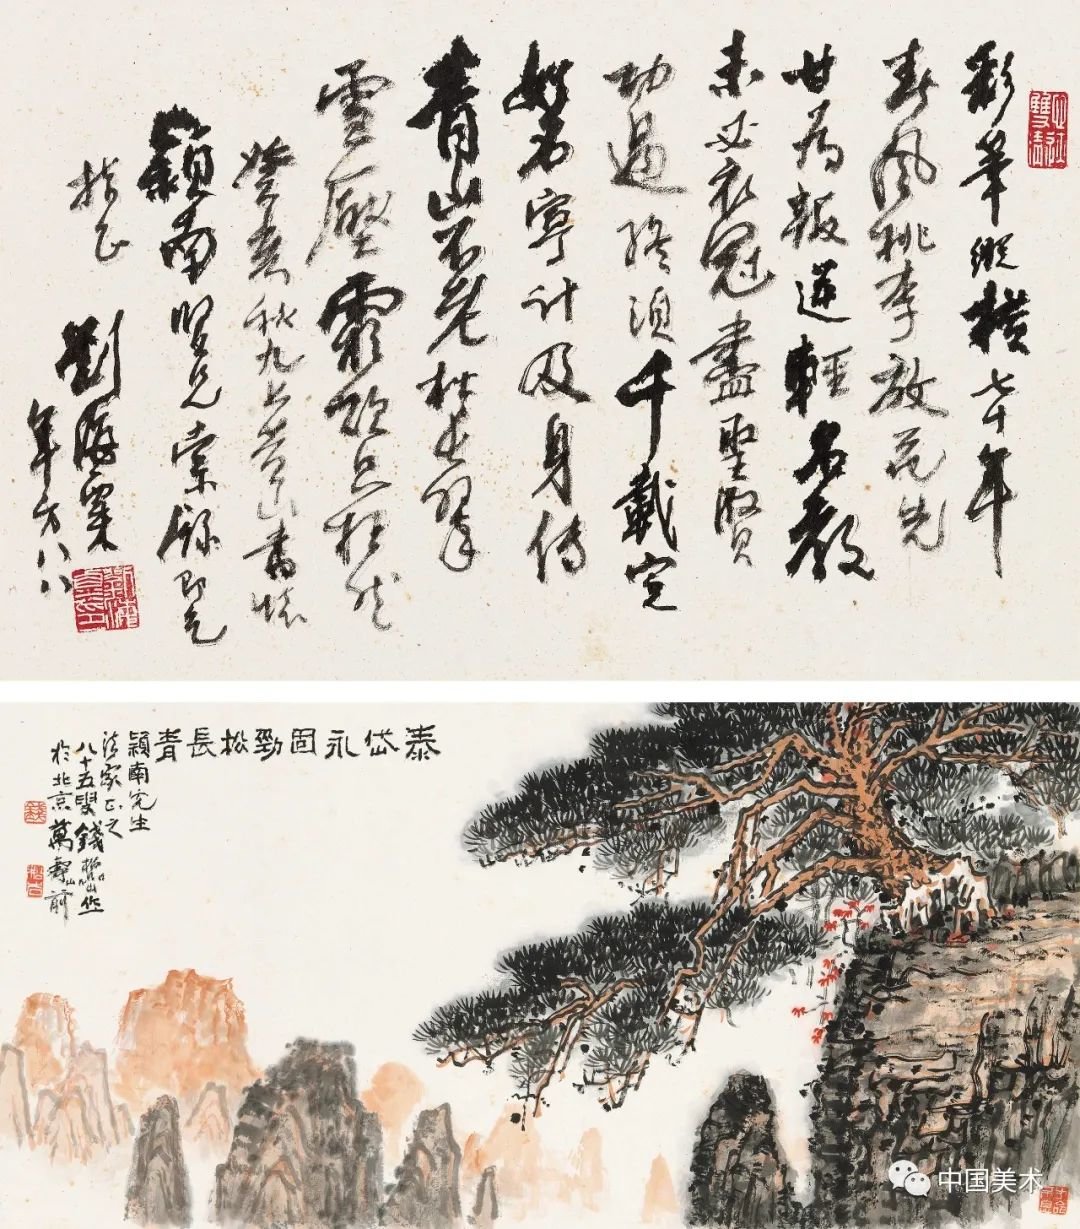 彩筆縱橫七十年
春風桃李放花先
甘為叛道輕名教
未必衣冠盡聖賢
功過終須千載定
名寧計及身傳
青山不老松長翠
雲壓霜欺只挺然
癸亥秋九上黃山書懷
穎南賢兄索錄即乞
指正
劉海粟
年方八八
泰岱永固勁松長青
穎南先生
法家正之
八十五叟錢松喦作
於北京萬壽山前
中国美术